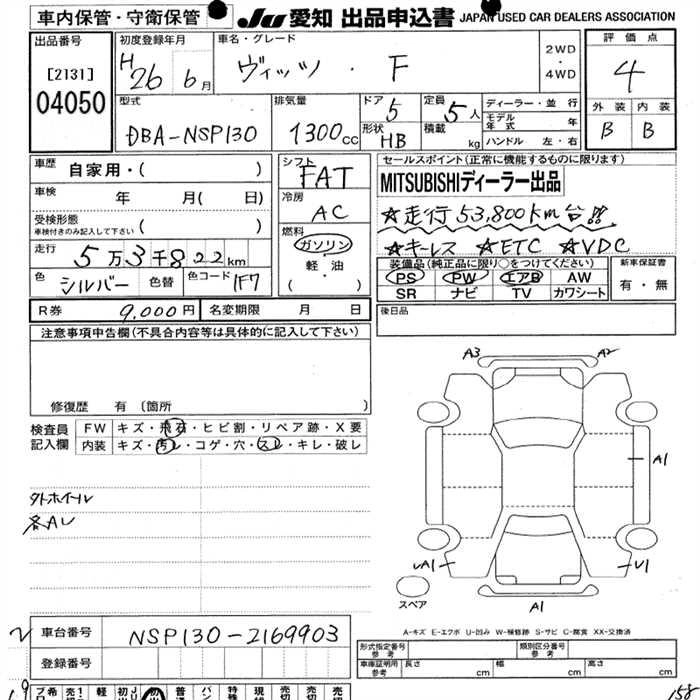 車内保管・守衛保管 JU 愛知 出品申込書 JAPAN USED CAR DEALERS ASSOCIATION
出品番号 [2131] 04050
初度登録年月 H 26 年 6 月
車名・グレード ヴィッツ・F
2WD・4WD
評価点 4
外装 内装
B B
型式 DBA-NSP130
排気量 1300cc
ドア 5
形状 HB
定員 5人
積載 kg
ディーラー・並行
モデル年式 年
ハンドル 左・右
車歴 自家用・( )
車検 年 月( 日)
受検形態 車検付きのみ記入して下さい ( )
走行 5万3千822km
色 シルバー 色替 色コード 1F7
シフト FAT
冷房 AC
燃料 ガソリン・軽・油
・( )
セールスポイント(正常に機能するものに限ります)
MITSUBISHIディーラー出品
★走行53,800km台!!
★キーレス ★ETC ★VDC
装備品(純正品に限り○をつけてください)
PS PW エアB AW
SR ナビ TV カワシート
新車保証書 有・無
R券 9,000円 名変期限 月 日
後日品
注意事項申告欄(不具合内容等は具体的に記入して下さい)
修復歴 有 〔箇所 〕
検査員記入欄
FW キズ・飛石・ヒビ割・リペア跡・X要
内装 キズ・汚レ・コゲ・穴・スレ・キレ・破レ
外ホイール
各AU
A3 A2
A1
UA1 U1
A1
スペア
A-キズ E-エクボ U-凹み W-補修跡 S-サビ C-腐食 XX-交換済
車台番号 NSP130-2169903
登録番号
形式指定番号 参考 類別区分番号 参考
車庫証明用 参考 長さ cm 幅 cm 高さ cm
158